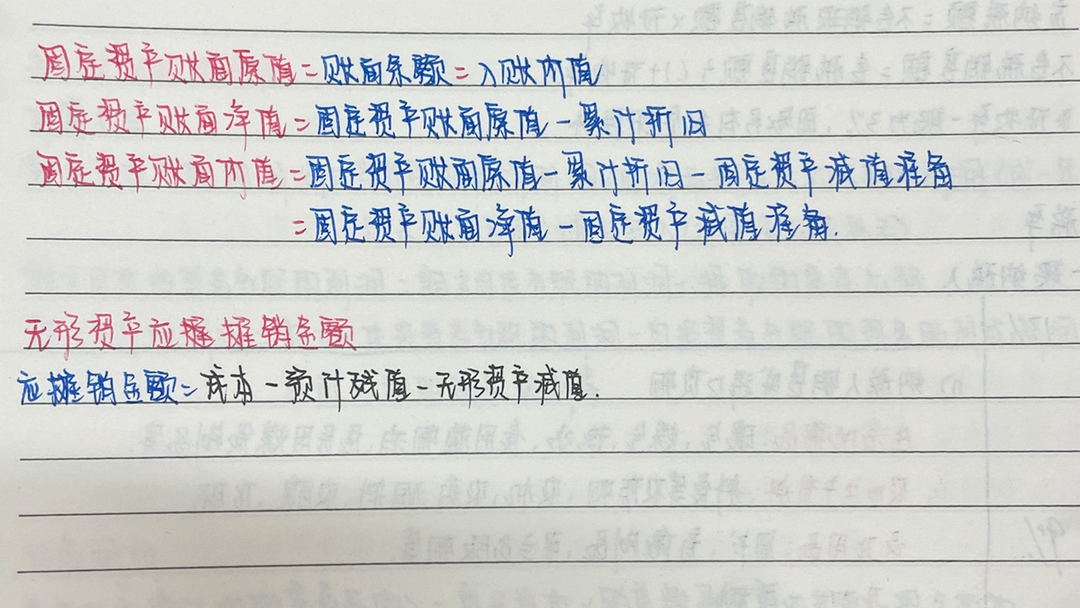 固定资产账面原值=账面余额=入账价值
固定资产账面净值=固定资产账面原值-累计折旧
固定资产账面价值=固定资产账面原值-累计折旧-固定资产减值准备
=固定资产账面净值-固定资产减值准备.
无形资产应摊摊销金额
应摊销金额=成本-预计残值-无形资产减值.